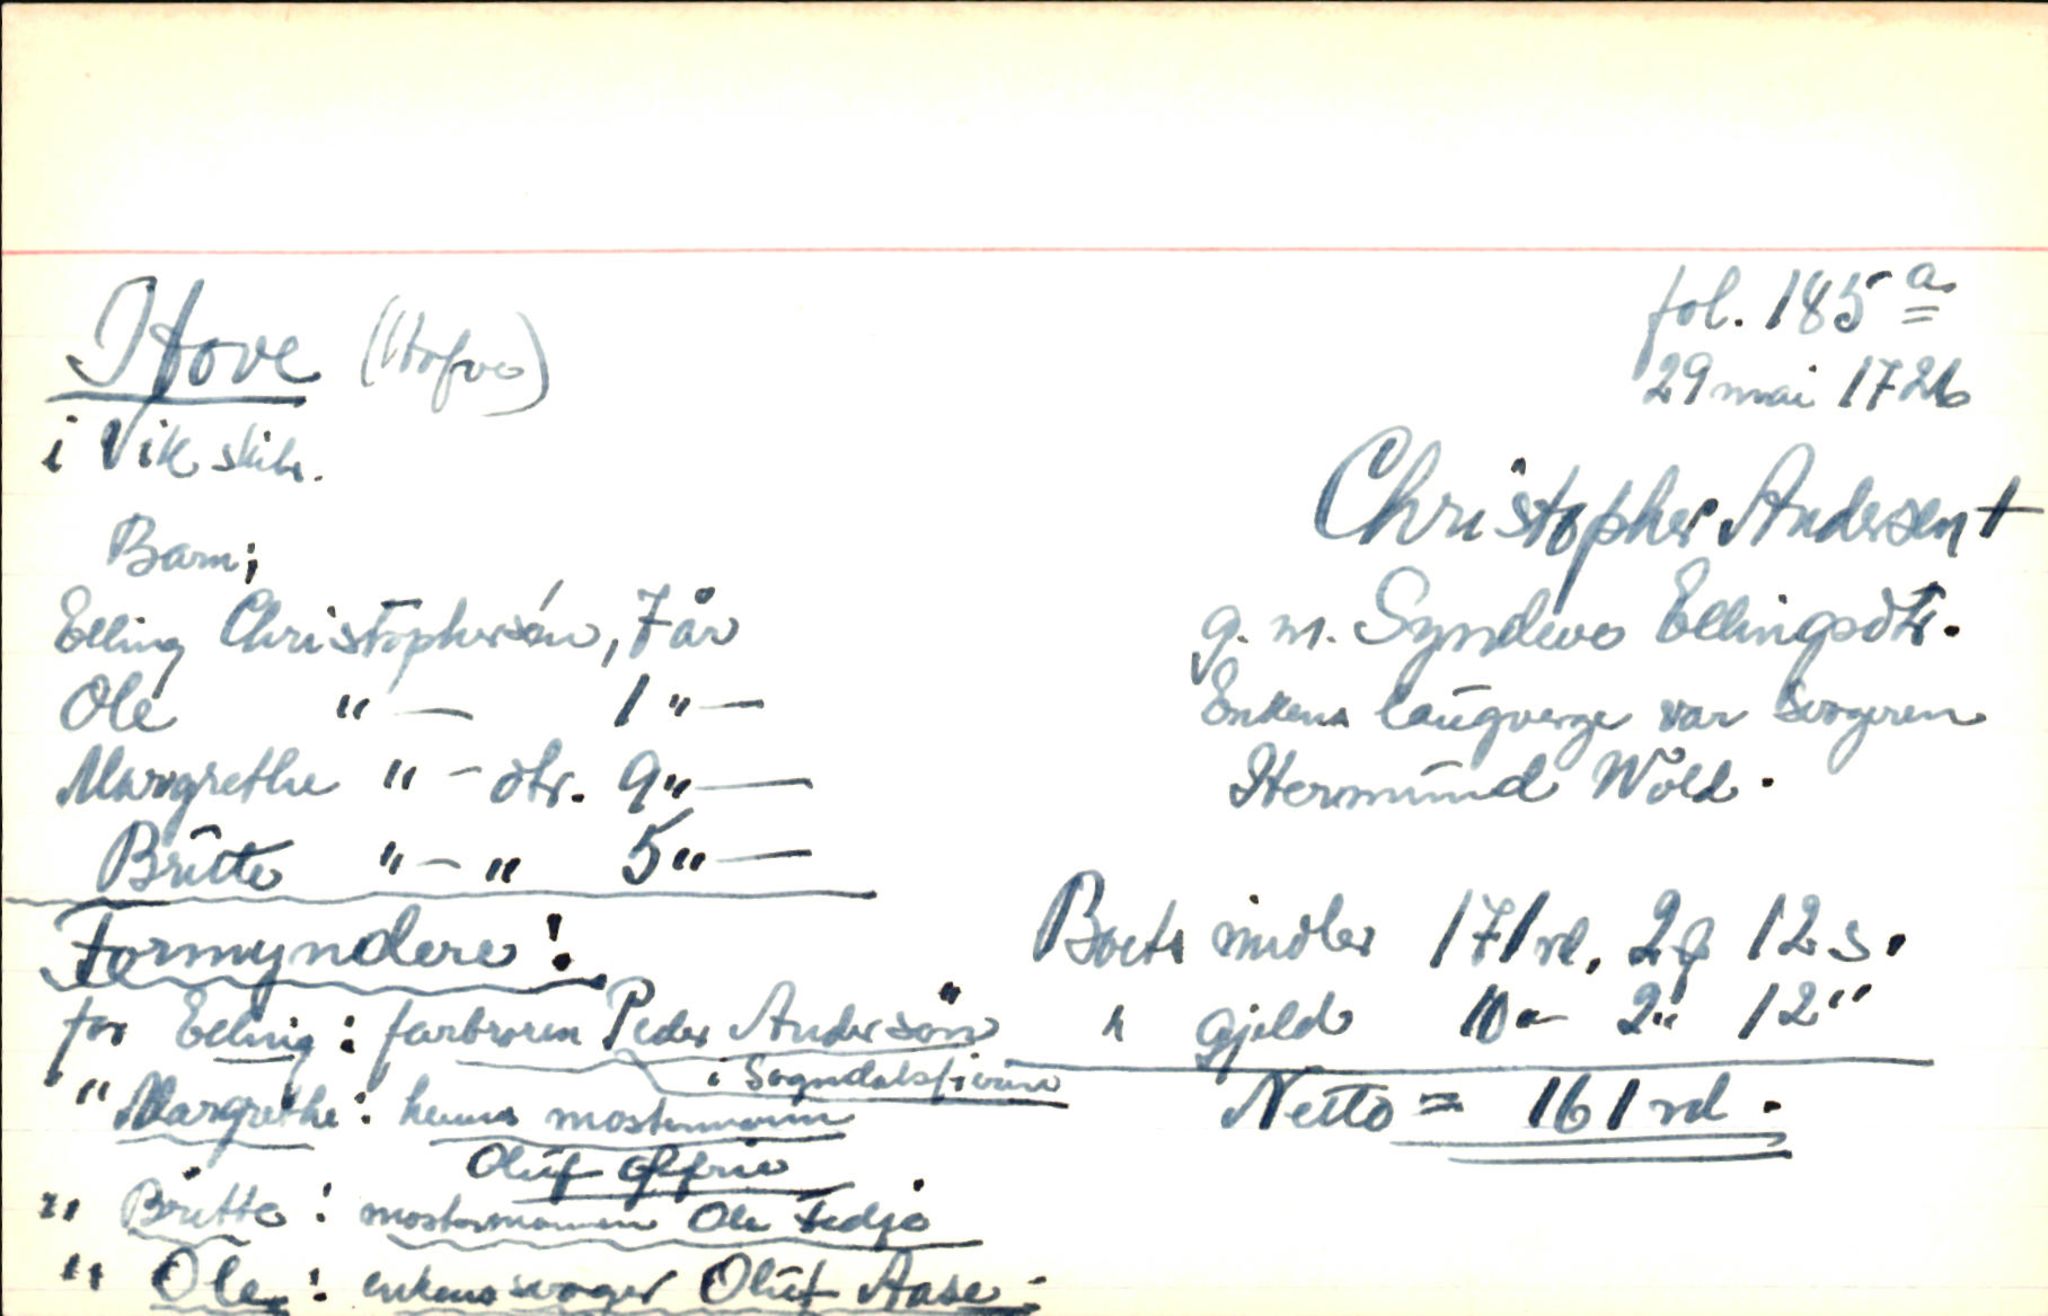 Hove (Hofve)
i Vik skibr.
fol. 185 a
29 mai 1726
Christopher Andersen †
g. m. Syndeve Ellingsdtr.
Enkens laugverge var svogeren
Hermund Wold.
Barn;
Elling Christophersen, 7 år
Ole " — 1 " —
Margrethe " — dtr. 9 " —
Britte " — " 5 " —
Boets midler 171 rd. 2 ƒ 12 s.
" gjeld 10 " 2 " 12 "
Netto = 161 rd.
Formyndere:
for Elling: farbroren Peder Anderson
i Sogndalsfierin
" Margrethe: hennes mostermann
Oluf
" Britte: mostermannen Ole Fedje
" Ole: enkens svoger Oluf Aase